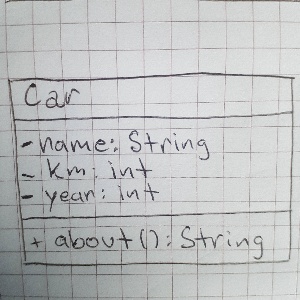 Car
- name: String
- km: int
- year: int
+ about(): String